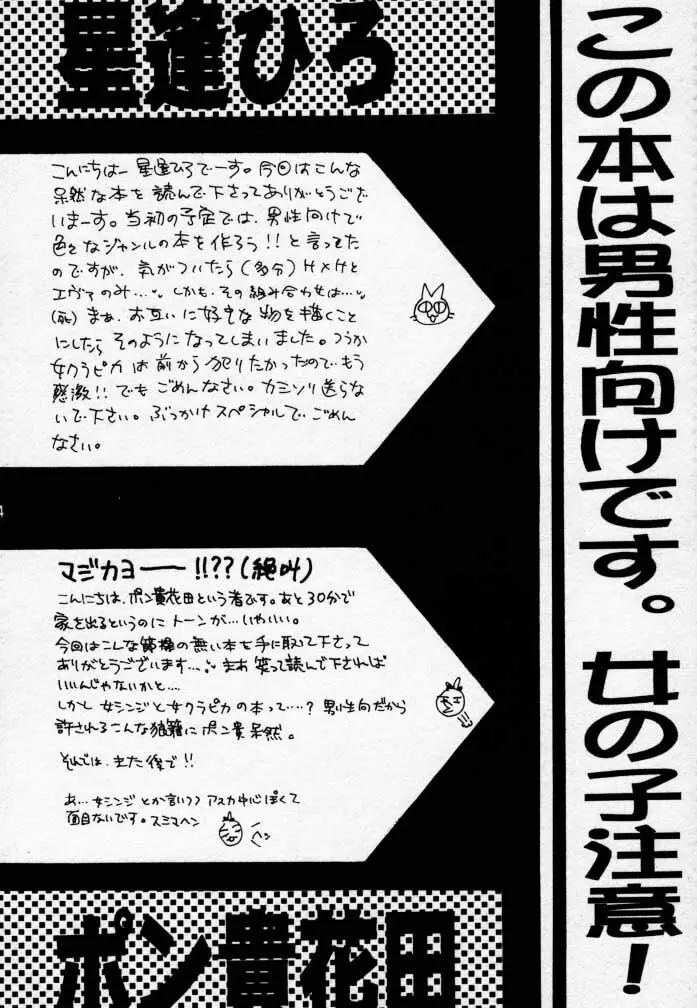 この本は男性向けです。女の子注意!
星逢ひろ
こんにちはー星逢ひろでーす。今回はこんな
呆然な本を読んで下さってありがとうござ
いまーす。当初の予定では、男性向けで
色々なジャンルの本を作ろう!!と言ってた
のですが、気がついたら(多分)H×Hと
エヴァのみ…。しかも、その組み合わせは…。
(死)まぁ、お互いに好きな物を描くこと
にしたらそのようになってしまいました。つうか
女クラピカは前から犯りたかったので、もう
感激!!でもごめんなさい。カミソリ送らな
いで下さい。ぶっかけスペシャルでごめん
なさい。
4
マジカヨーー!!??(絶叫)
こんにちは、ポン貴花田という者です。あと30分で
家を出るというのにトーンが…いやいい。
今回はこんな節操の無い本を手に取って下さって
ありがとうございます…。まあ笑って読んで下されば
いいんじゃないかと…。
しかし女シンジと女クラピカの本って…?男性向だから
許されるこんな狼籍にポン貴呆然。
それでは、また後で!!
あ…女シンジとか言いつつアスカ中心ぽくて
面目ないです。スミマヘン
ヘン
ポン貴花田